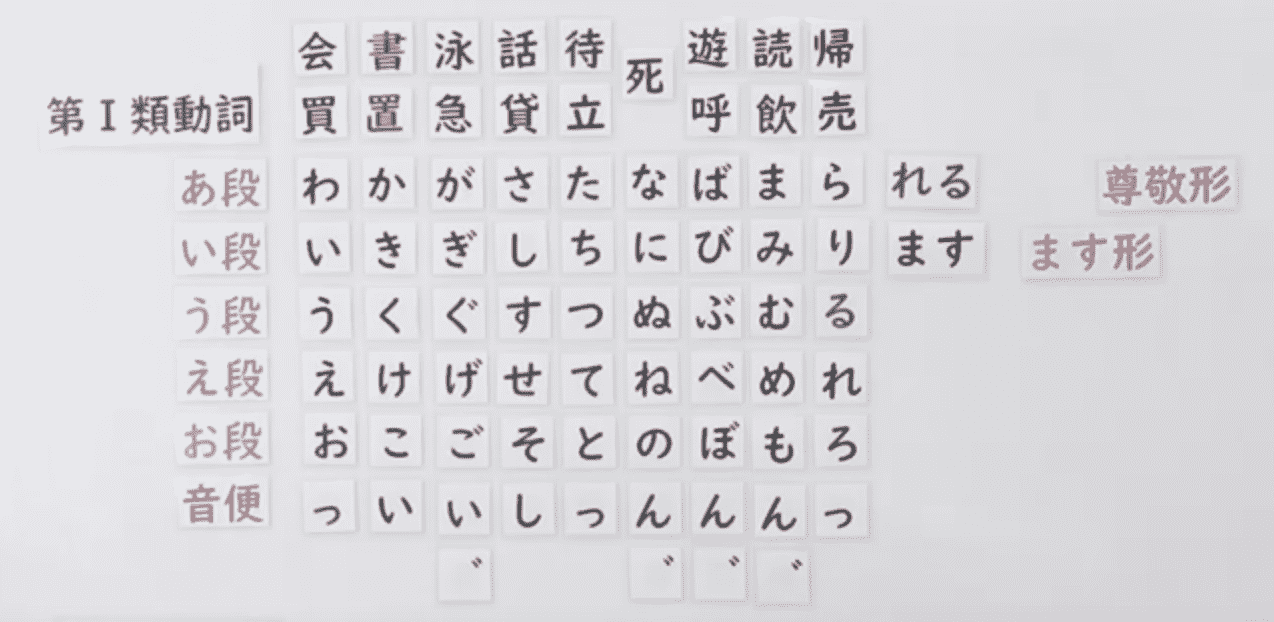 会 書 泳 話 待 死 遊 読 帰
第Ⅰ類動詞 買 置 急 貸 立 呼 飲 売
あ段 わ か が さ た な ば ま ら れる 尊敬形
い段 い き ぎ し ち に び み り ます ます形
う段 う く ぐ す つ ぬ ぶ む る
え段 え け げ せ て ね べ め れ
お段 お こ ご そ と の ぼ も ろ
音便 っ い い し っ ん ん ん っ
゛ ゛ ゛ ゛